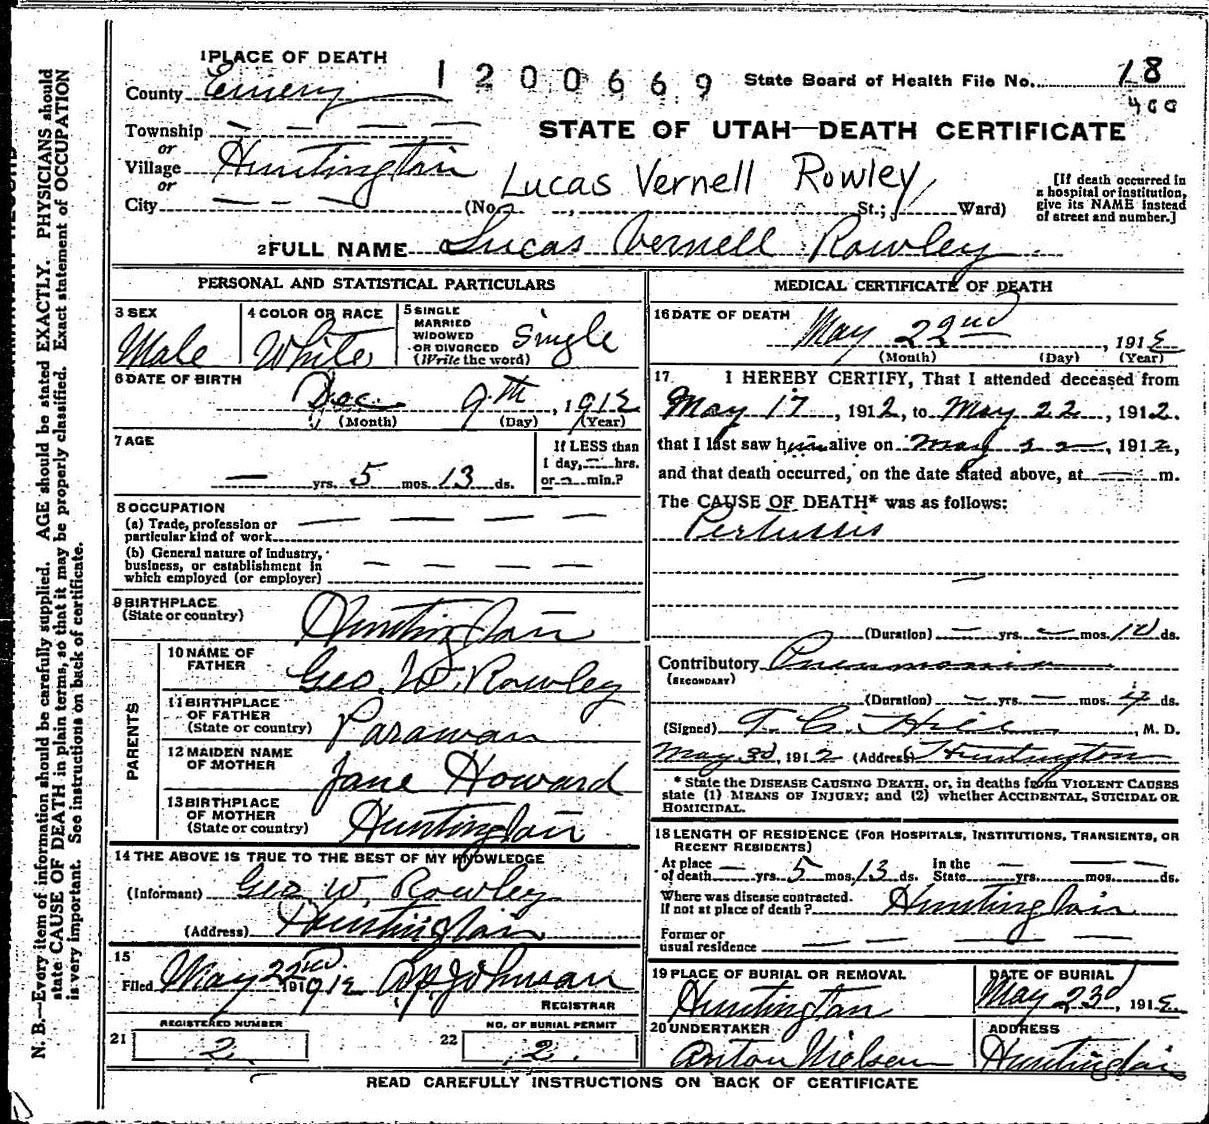 1 PLACE OF DEATH
County Emery
1200669
State Board of Health File No. 18
400
Township — — — —
or
Village Huntington
or
City — — —
STATE OF UTAH—DEATH CERTIFICATE
Lucas Vernell Rowley
(No. , St.; Ward)
[If death occurred in
a hospital or institution,
give its NAME instead
of street and number.]
2 FULL NAME Lucas Vernell Rowley
PERSONAL AND STATISTICAL PARTICULARS
3 SEX
Male
4 COLOR OR RACE
White
5 SINGLE
MARRIED
WIDOWED
OR DIVORCED
(Write the word)
Single
6 DATE OF BIRTH
Dec 9th, 1912
(Month) (Day) (Year)
7 AGE
— yrs. 5 mos. 13 ds.
If LESS than
1 day, — hrs.
or — min.?
8 OCCUPATION
(a) Trade, profession or
particular kind of work — — — —
(b) General nature of industry,
business, or establishment in
which employed (or employer) — — — —
9 BIRTHPLACE
(State or country) Huntington
PARENTS
10 NAME OF
FATHER Geo. W. Rowley
11 BIRTHPLACE
OF FATHER
(State or country) Parawan
12 MAIDEN NAME
OF MOTHER Jane Howard
13 BIRTHPLACE
OF MOTHER
(State or country) Huntington
14 THE ABOVE IS TRUE TO THE BEST OF MY KNOWLEDGE
(Informant) Geo W. Rowley
(Address) Huntington
15
Filed May 22nd 1912 Johnson
REGISTRAR
REGISTERED NUMBER
21 2
NO. OF BURIAL PERMIT
22 2.
MEDICAL CERTIFICATE OF DEATH
16 DATE OF DEATH
May 22nd, 1912
(Month) (Day) (Year)
17 I HEREBY CERTIFY, That I attended deceased from
May 17, 1912, to May 22, 1912.
that I last saw him alive on May 22, 1912,
and that death occurred, on the date stated above, at — m.
The CAUSE OF DEATH* was as follows:
Pertussis
(Duration) — yrs. — mos. 10 ds.
Contributory Pneumonia
(SECONDARY)
(Duration) — yrs. — mos. 4 ds.
(Signed) T. C. Hill, M. D.
May 3d, 1912 (Address) Huntington
* State the DISEASE CAUSING DEATH, or, in deaths from VIOLENT CAUSES
state (1) MEANS OF INJURY; and (2) whether ACCIDENTAL, SUICIDAL OR
HOMICIDAL.
18 LENGTH OF RESIDENCE (FOR HOSPITALS, INSTITUTIONS, TRANSIENTS, OR
RECENT RESIDENTS)
At place
of death — yrs. 5 mos. 13 ds.
In the
State — yrs. — mos. — ds.
Where was disease contracted.
If not at place of death? Huntington
Former or
usual residence — — — —
19 PLACE OF BURIAL OR REMOVAL
Huntington
DATE OF BURIAL
May 23d, 1912
20 UNDERTAKER
Anton Nielsen
ADDRESS
Huntington
READ CAREFULLY INSTRUCTIONS ON BACK OF CERTIFICATE
N. B.—Every item of information should be carefully supplied. AGE should be stated EXACTLY. PHYSICIANS should
state CAUSE OF DEATH in plain terms, so that it may be properly classified. Exact statement of OCCUPATION
is very important. See instructions on back of certificate.